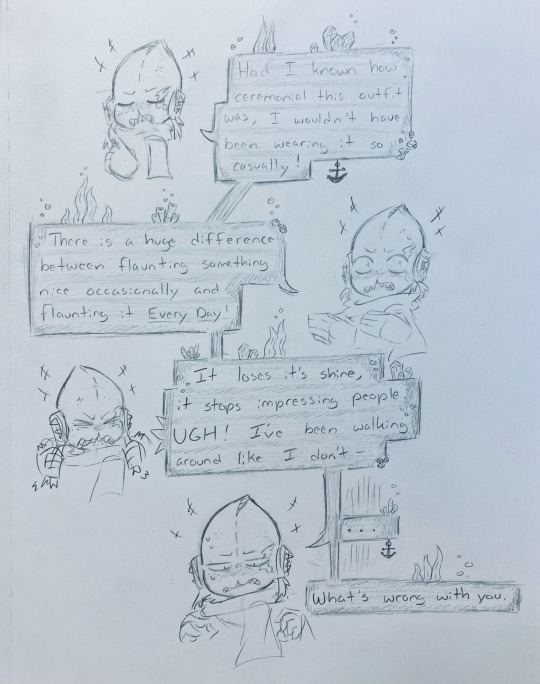 Had I known how
ceremonial this outfit
was, I wouldn't have
been wearing it so
casually!
There is a huge difference
between flaunting something
nice occasionally and
flaunting it Every Day!
It loses it's shine,
it stops impressing people
UGH! I've been walking
around like I don't -
...
What's wrong with you.